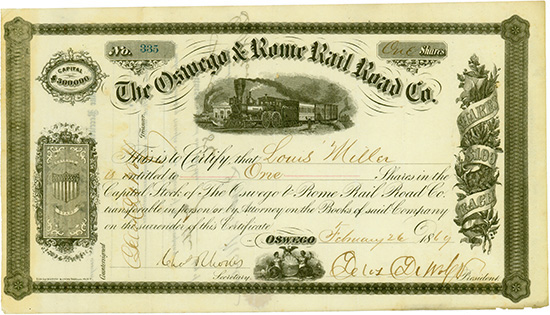 No. 335
One Shares
CAPITAL
$300,000.
The Oswego & Rome Rail Road Co.
This is to Certify, that Louis Miller
is entitled to One Shares in the
Capital Stock of The Oswego & Rome Rail Road Co.
transferable in person or by Attorney on the Books of said Company
on the surrender of this Certificate
OSWEGO February 26 1869
Secretary.
President
Countersigned
Treasurer
SHARES
$100
EACH